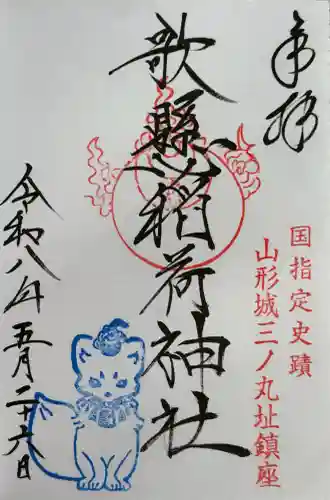 奉拝
国指定史蹟
山形城三ノ丸址鎮座
歌懸稲荷神社
令和八年五月二十六日